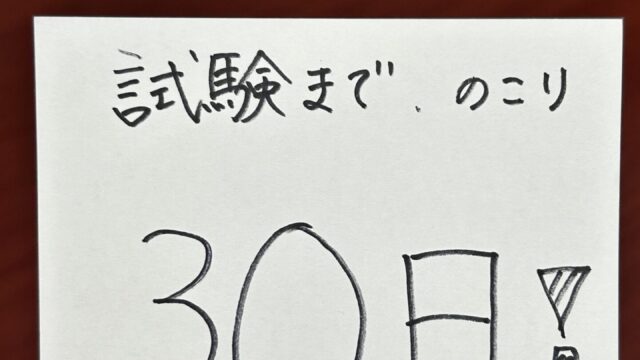 試験まで、のこり
30日!